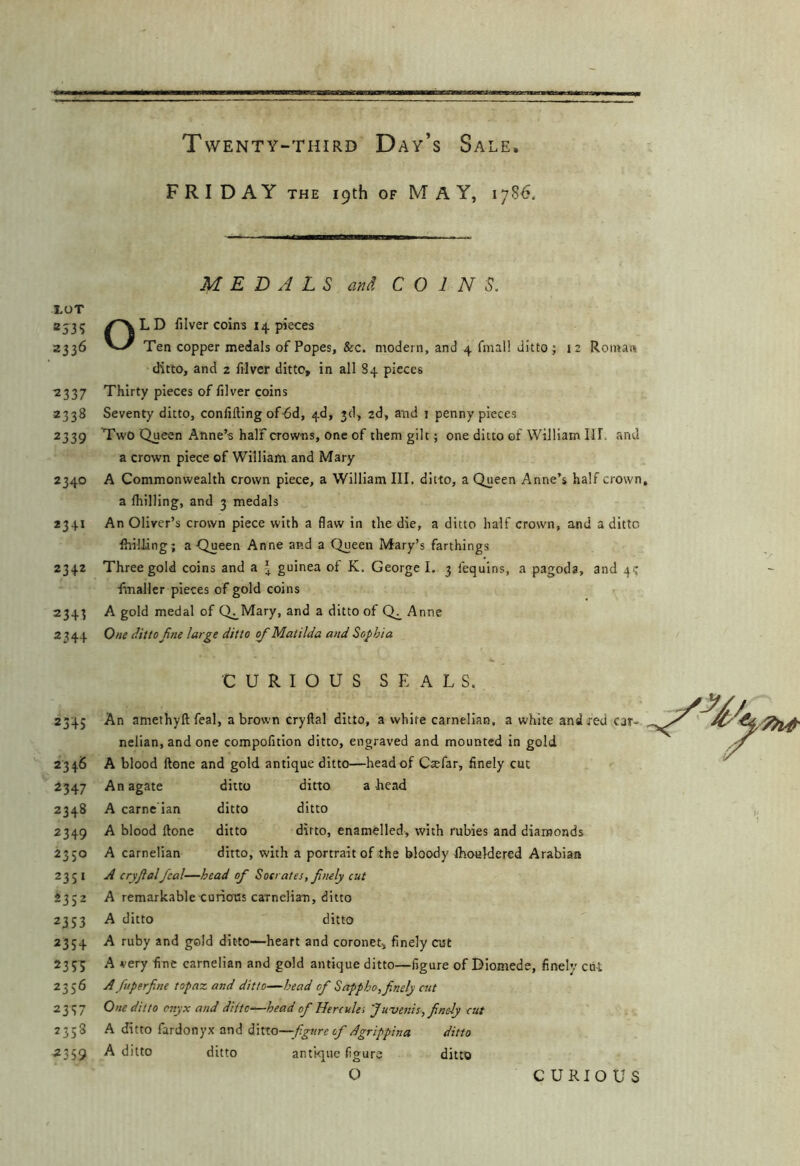 TWENTY-THIRD DAY'S SALE.
FRIDAY THE 19th OF MAY, 1786.
MEDALS and COINS.
LOT
2335 OLD ſilver coins 14 pieces
2336 Ten copper medals of Popes, &c. modern, and 4 ſmall ditto; 12 Roman
ditto, and 2 ſilver ditto, in all 84 pieces
2337 Thirty pieces of ſilver coins
2338 Seventy ditto, conſiſting of 6d, 4d, 3d, 2d, and 1 penny pieces
2339 Two Queen Anne's half crowns, one of them gilt; one ditto of William III. and
a crown piece of William and Mary
2340 A Commonwealth crown piece, a William III. ditto, a Queen Anne's half crown,
a ſhilling, and 3 medals
2341 An Oliver's crown piece with a flaw in the die, a ditto half crown, and a ditto
ſhilling; a Queen Anne and a Queen Mary's farthings
2342 Three gold coins and a ¼ guinea of K. George I. 3 ſequins, a pagoda, and 4
ſmaller pieces of gold coins
2343 A gold medal of Q. Mary, and a ditto of Q. Anne
2344 One ditto fine large ditto of Matilda and Sophia
CURIOUS SEALS.
2345 An amethyſt ſeal, a brown cryſtal ditto, a white carnelian, a white and red car-
nelian, and one compoſition ditto, engraved and mounted in gold
2346 A blood ſtone and gold antique ditto—head of Cæſar, finely cut
2347 An agate ditto ditto a head
2348 A carne ian ditto ditto
2349 A blood ſtone ditto ditto, enamelled, with rubies and diamonds
2350 A carnelian ditto, with a portrait of the bloody ſhouldered Arabian
2351 A cryſtal ſeal—head of Socrates, finely cut
2352 A remarkable curious carnelian, ditto
2353 A ditto ditto
2354 A ruby and gold ditto—heart and coronet, finely cut
2355 A very fine carnelian and gold antique ditto—figure of Diomede, finely cut
2356 A ſuperfine topaz and ditto—head of Sappho, finely cut
2357 One ditto onyx and ditto—head of Hercules Juvenis, finely cut
2358 A ditto ſardonyx and ditto—figure of Agrippina ditto
2359 A ditto ditto antique figure ditto
O CURIOUS